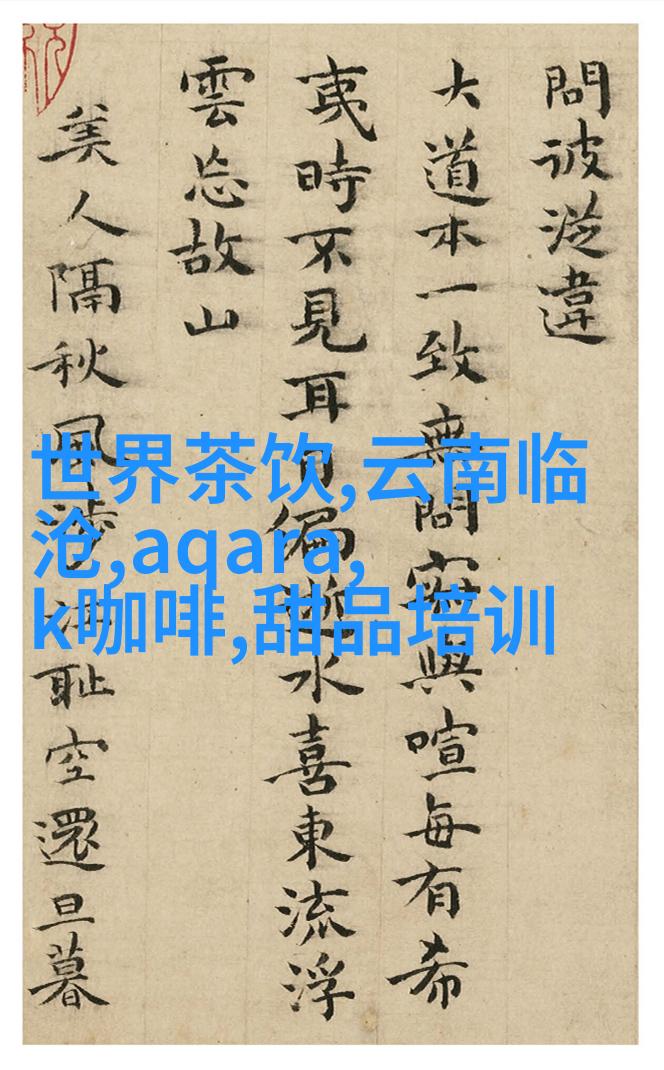 問彼從違
大道本一致無問寂與喧每有希
夷時不見耳目偏逝水喜東流浮
雲忘故山
美人隔秋風涉江耻空還旦暮
世界茶饮,云南临
沧,aqara,
k咖啡,甜品培训